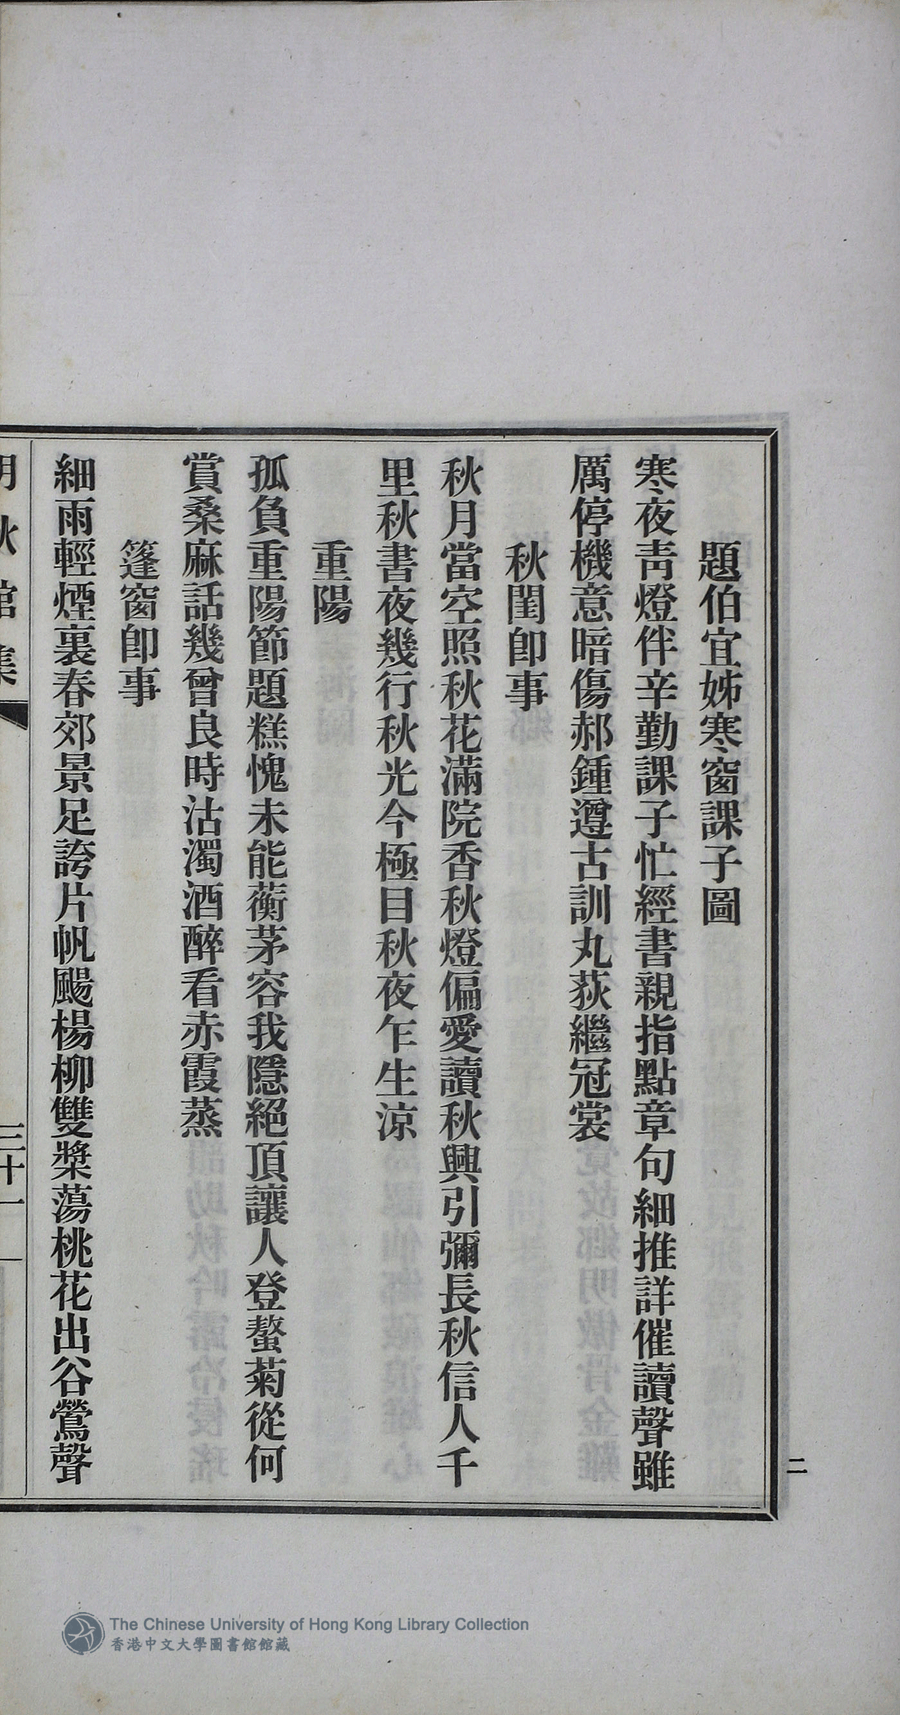 題伯宜姊寒窗課子圖
寒夜靑燈伴辛勤課子忙經書親指點章句細推詳催讀聲雖
厲停機意暗傷郝鍾遵古訓丸荻繼冠裳
秋閨卽事
秋月當空照秋花滿院香秋燈偏愛讀秋興引彌長秋信人千
里秋書夜幾行秋光今極目秋夜乍生涼
重陽
孤負重陽節題糕愧未能蘅茅容我隱絕頂讓人登螯菊從何
賞桑麻話幾曾良時沽濁酒醉看赤霞蒸
篷窗卽事
細雨輕煙裏春郊景足誇片帆颺楊柳雙槳蕩桃花出谷鶯聲
秋館集
三十一
二
The Chinese University of Hong Kong Library Collection
香港中文大學圖書館館藏